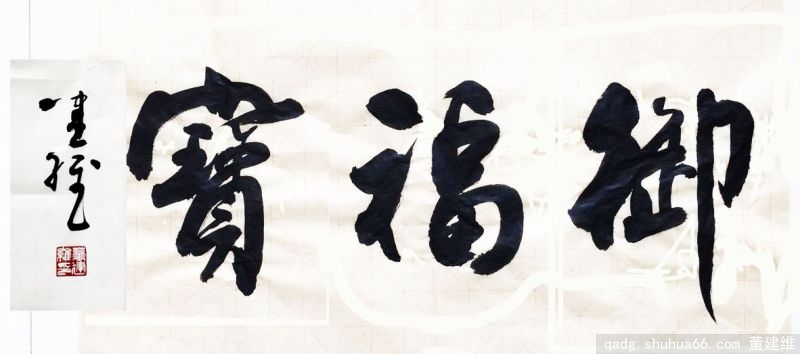 御福寶
建维
董建維印
qadg.shuhua66.com 董建维